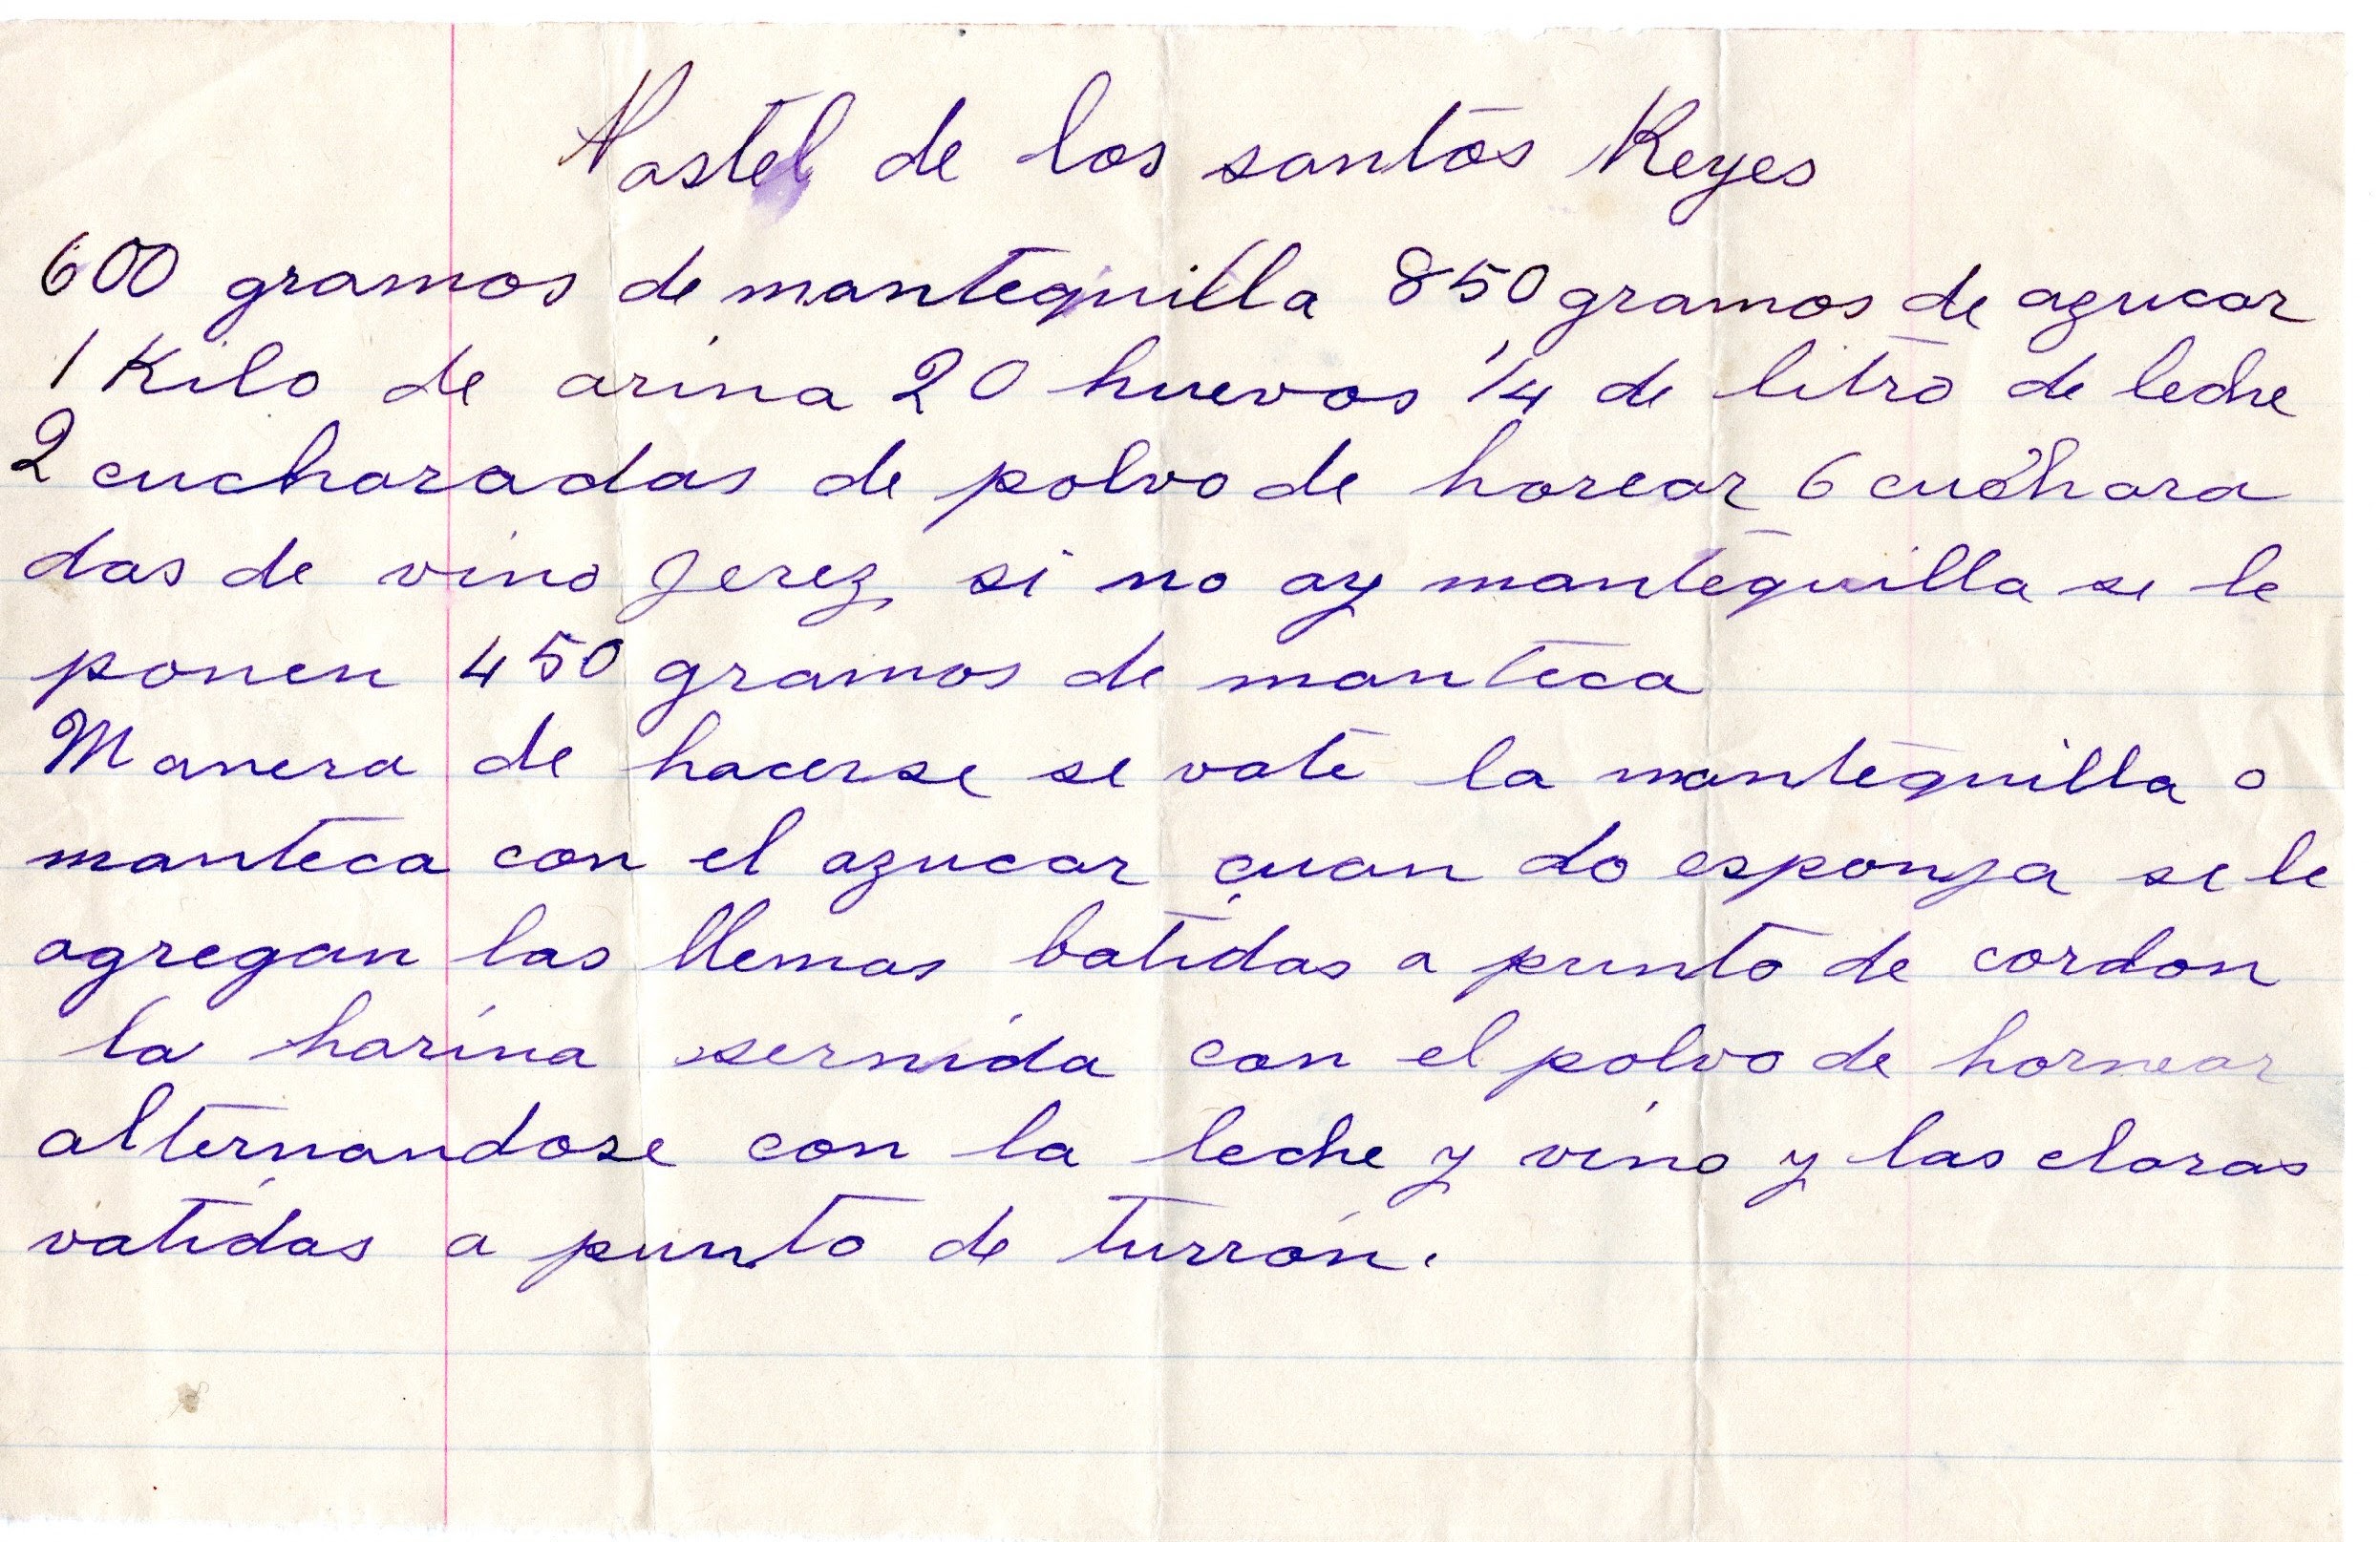 Pastel de los santos Reyes
600 gramos de mantequilla 850 gramos de azucar
1 Kilo de arina 20 huevos 1/4 de litro de leche
2 cucharadas de polvo de horear 6 cuchara
das de vino Jerez, si no ay mantequilla se le
ponen 450 gramos de manteca
Manera de hacerse se vate la mantequilla o
manteca con el azucar cuan do esponja se le
agregan las llemas batidas a punto de cordon
la harina sernida con el polvo de hornear
alternandose con la leche y vino y las claras
vatidas a punto de turrón.